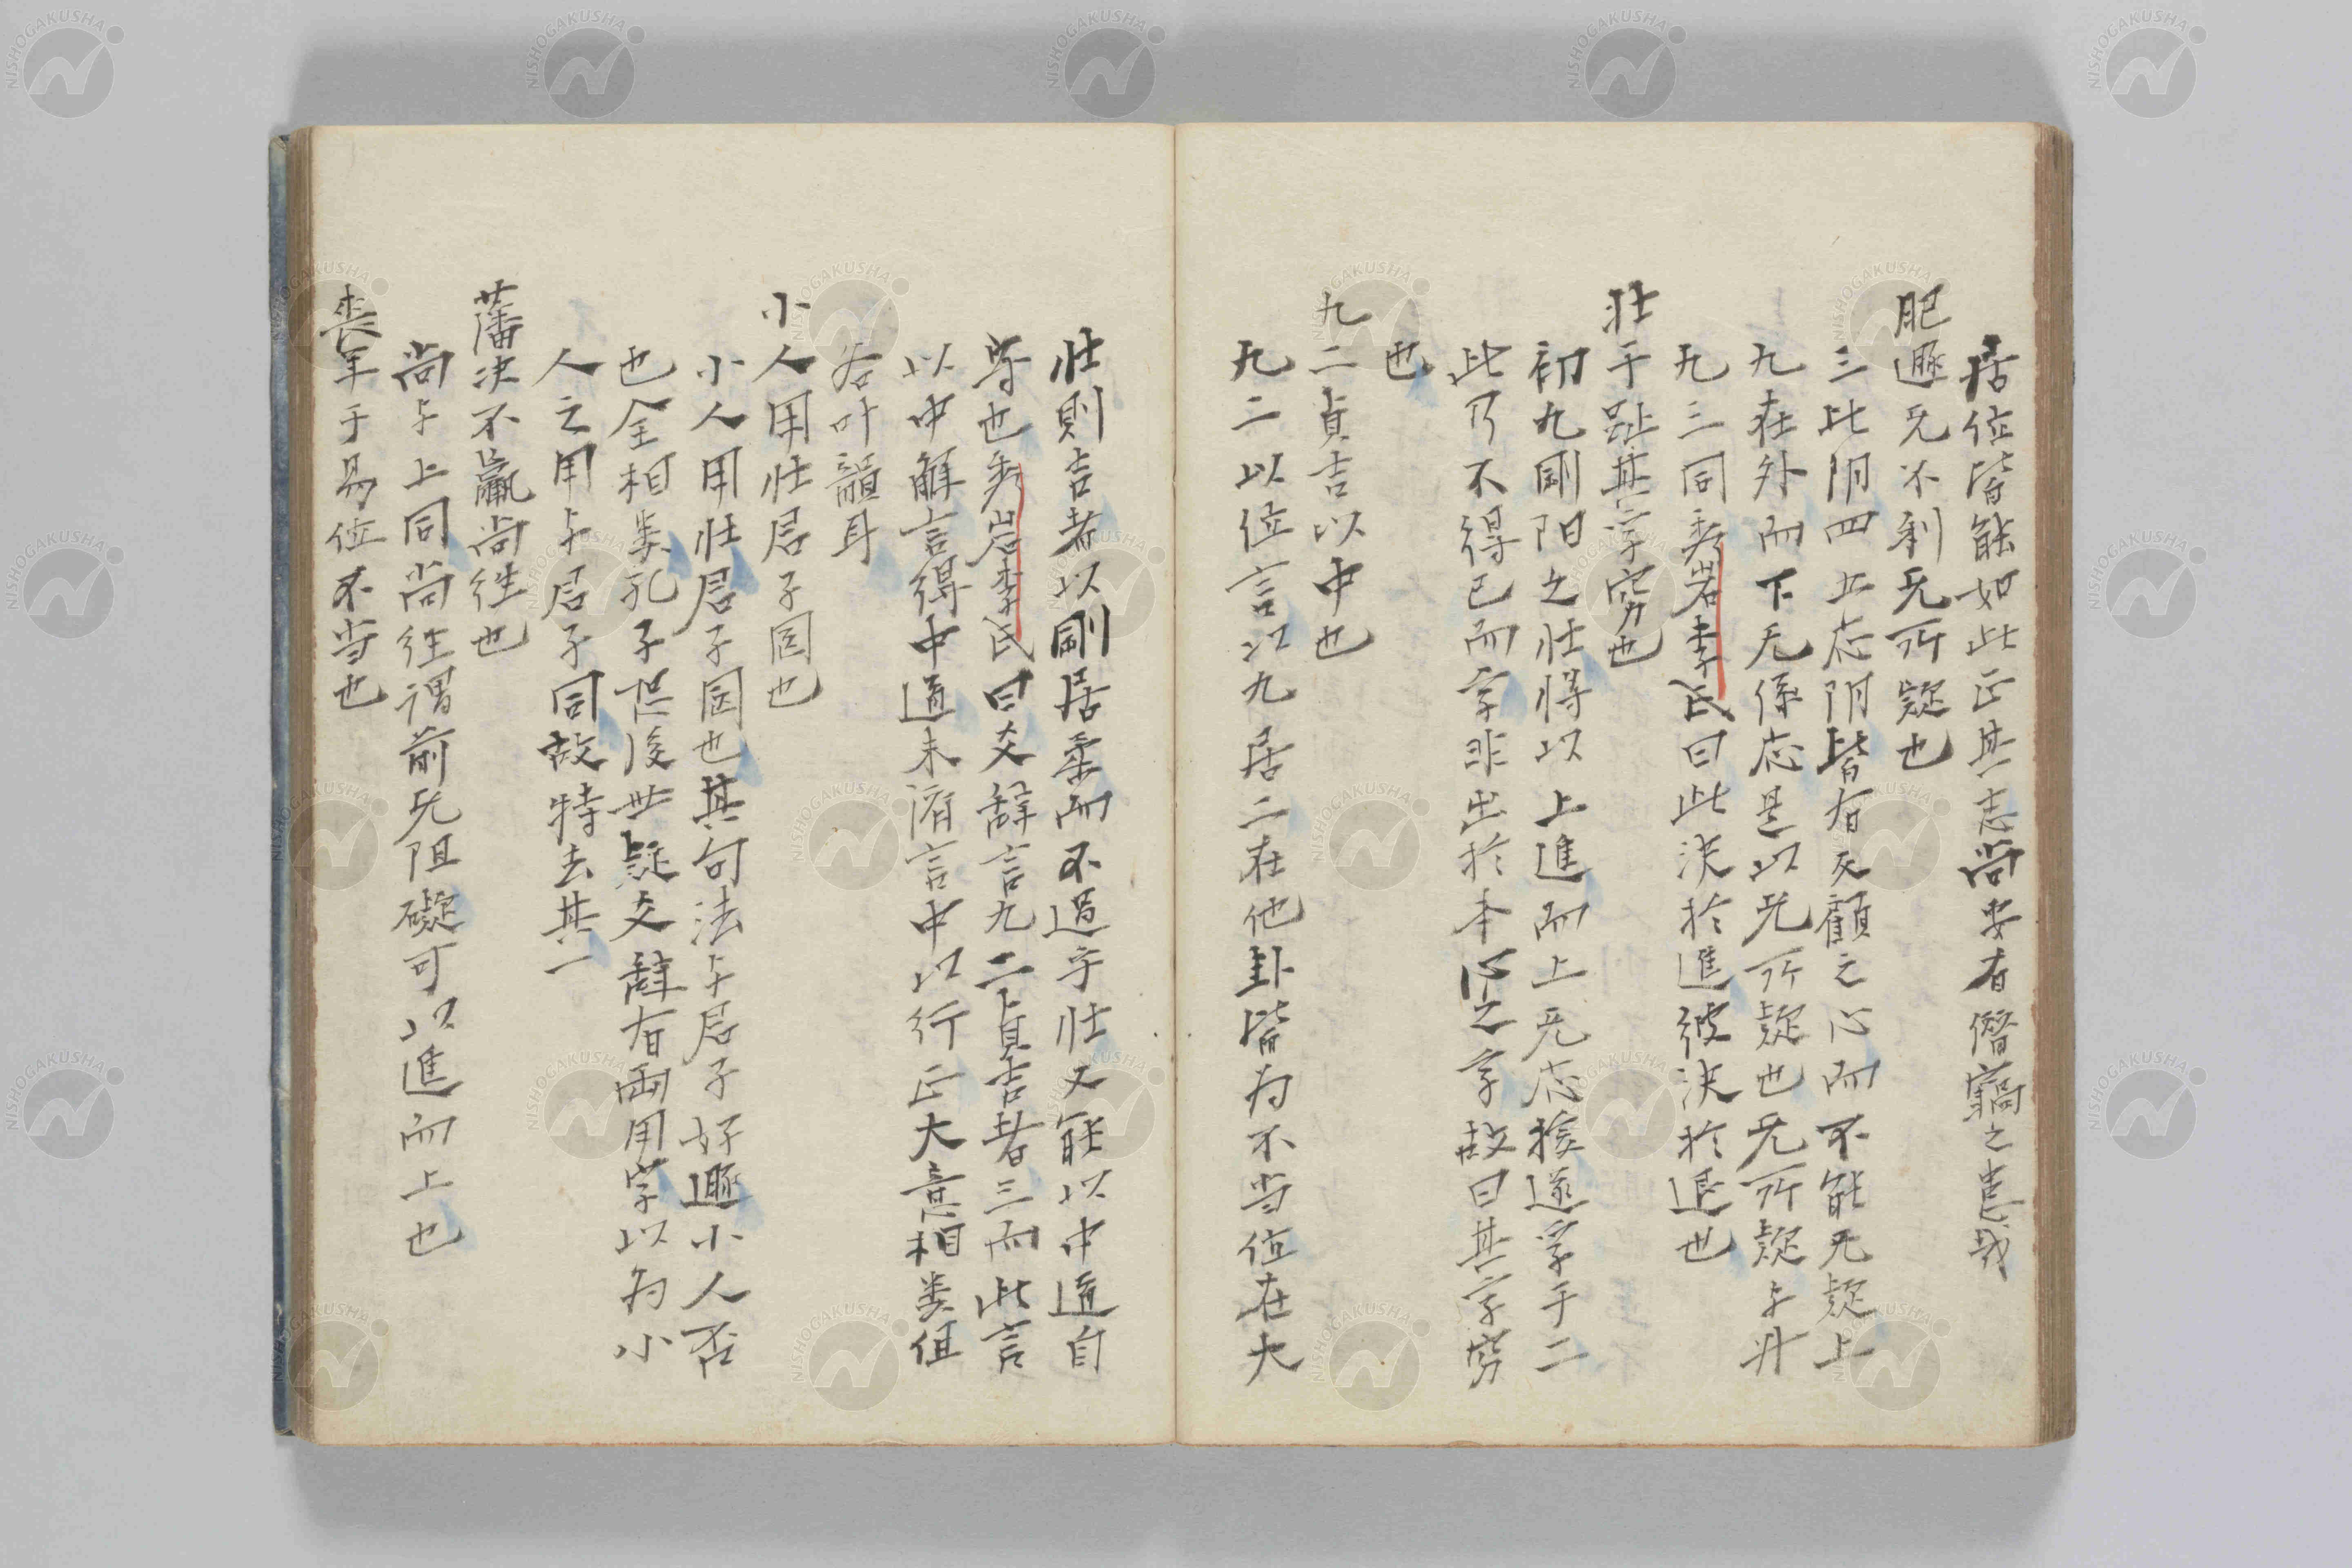 居位皆能如此正其志尚安有僭竊之患哉
肥遯无不利无所疑也
三比阴四五応阴皆有反顧之心而不能无疑上
九在外而下无係応是以无所疑也无所疑与升
九三同秀岩李氏曰此決於進彼決於退也
壮于趾其孚窮也
初九剛陽之壮将以上進而上无応援遂孚于二
此乃不得已而孚非出於本心之孚故曰其孚窮
也
九二貞吉以中也
九二以位言以九居二在他卦皆为不当位在大
壮則吉者以剛居柔而不過乎壮又能以中道自
守也秀岩李氏曰爻辞言九二貞吉者三而此言
以中解言得中道未済言中以行正大意相类但
各叶韻耳
小人用壮君子罔也
小人用壮君子罔也其句法与君子好遯小人否
也全相类孔子恐後世疑爻辞有両用字以为小
人之用与君子同故特去其一
藩决不羸尚往也
尚与上同尚往谓前无阻礙可以進而上也
喪羊于易位不当也
NISHOGAKUSHA